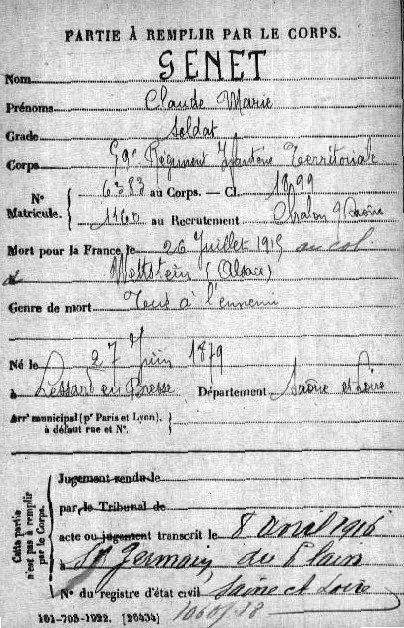 PARTIE À REMPLIR PAR LE CORPS.
Nom GENET
Prénoms Claude Marie
Grade Soldat
Corps 59e Régiment Infanterie Territoriale
N° Matricule. 6383 au Corps. — Cl. 1899
1160 au Recutement Chalon s/Saône
Mort pour la France le 26 Juillet 1915 au col
à Wettstein (Alsace)
Genre de mort Tué à l'ennemi
Né le 27 Juin 1879
à Lessard en Bresse Département Saône et Loire
Arrt municipal (pr Paris et Lyon), à défaut rue et N°.
Cette partie n'est pas à remplir par le Corps.
Jugement rendu le
par le Tribunal de
acte ou jugement transcrit le 8 avril 1916
à St Germain du Plain
N° du registre d'état civil Saône et Loire
161-708-1922. [26434]